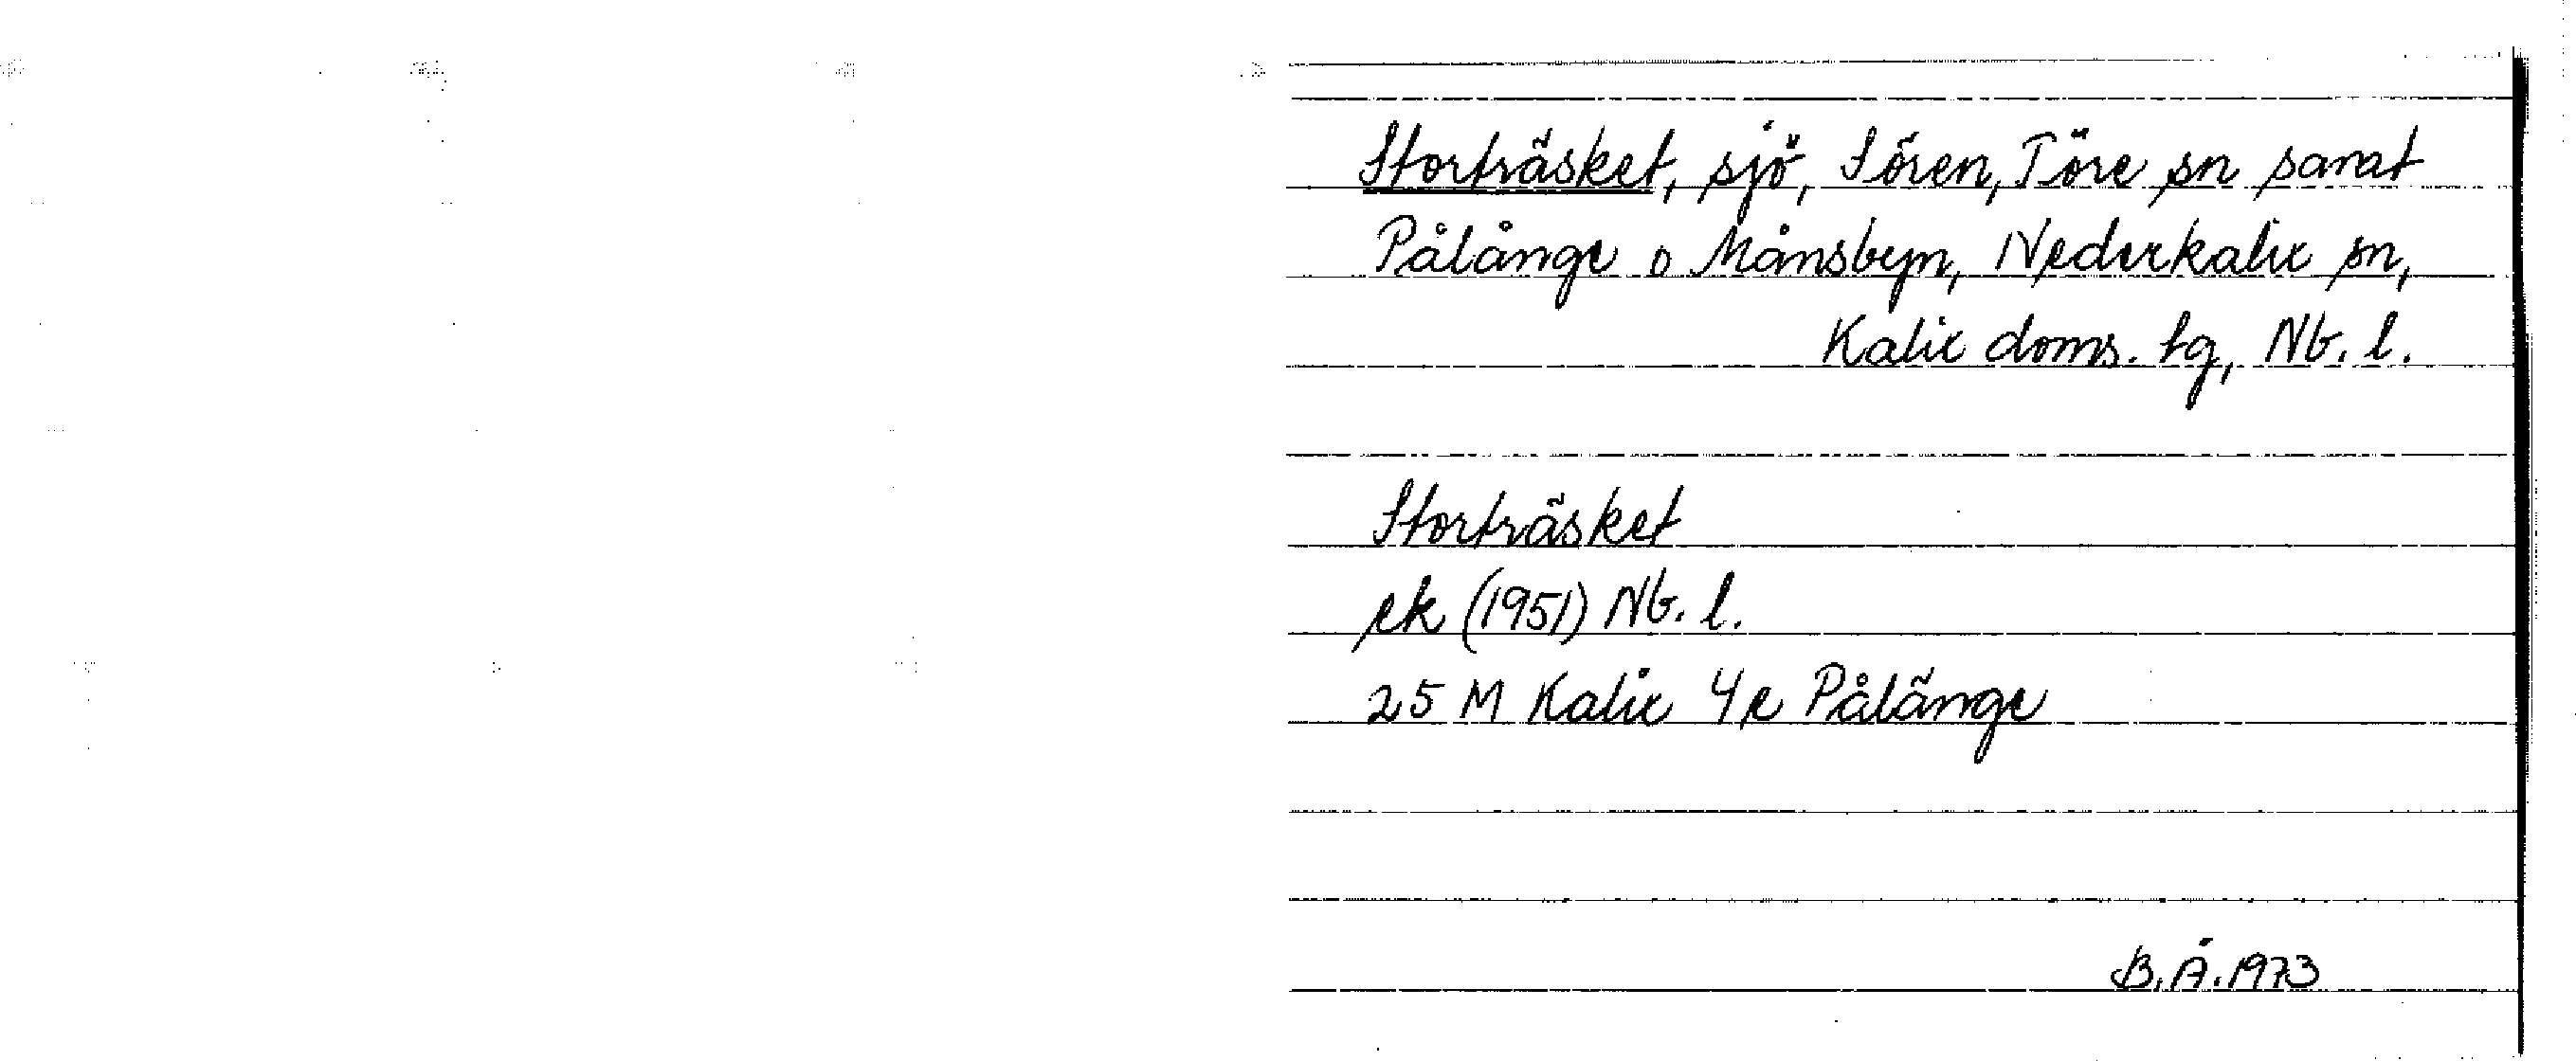 Storträsket, sjö, Sören, Töre sn samt
Pålänge o Månsbyn, Nederkalix sn,
Kalix doms. tg, Nb. l.
Storträsket
ek (1951) Nb. l.
25 M Kalix 4e Pålänge
B.Å. 1973